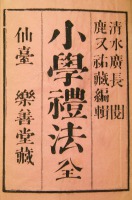 清水廣長閲
鹿又祐藏編輯
小學禮法 全
仙臺 樂善堂藏